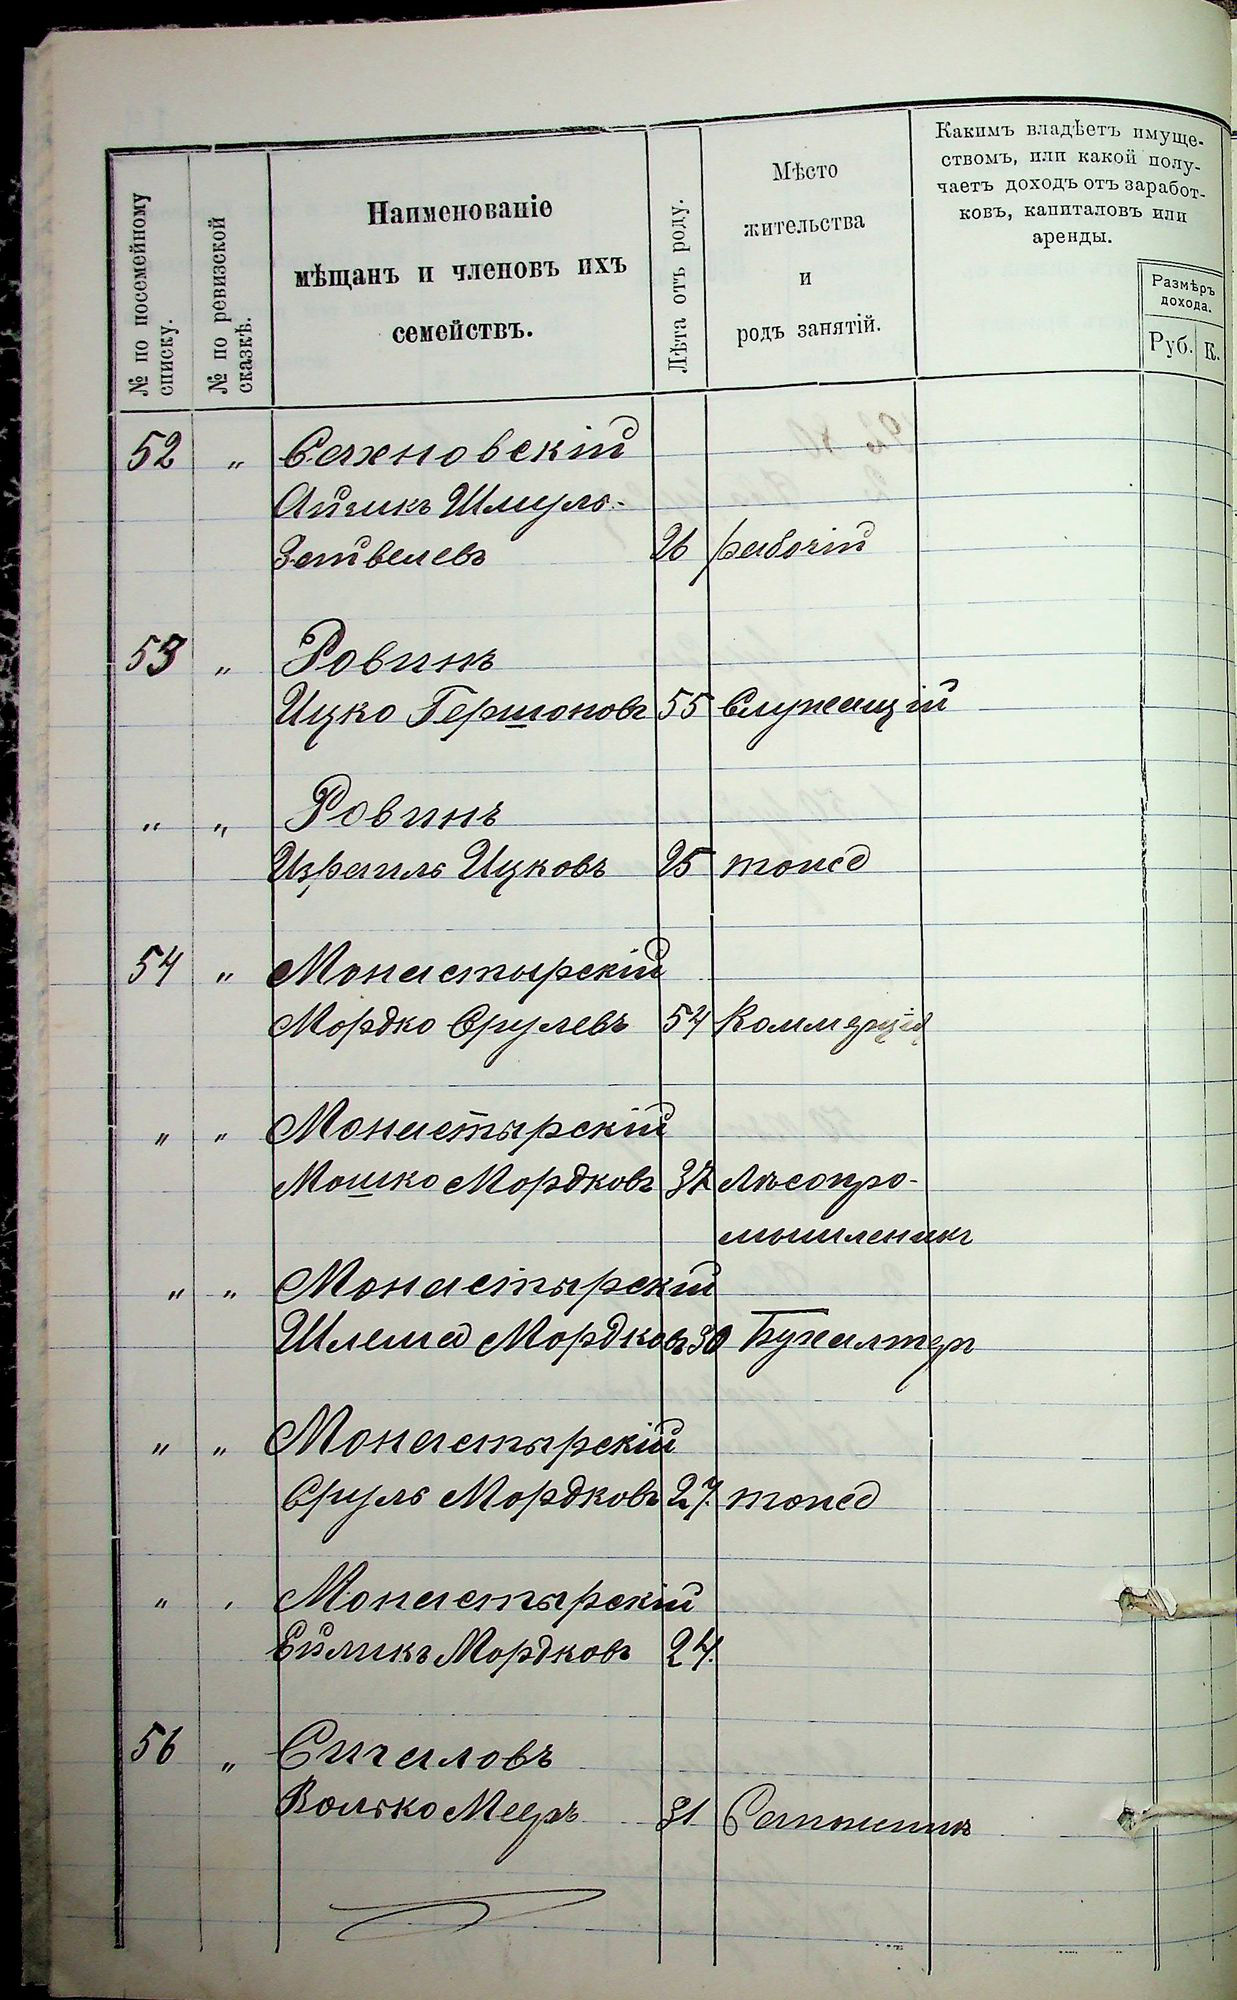 № по посемейному
списку.
№ по ревизской
сказкѣ.
Наименованіе
мѣщанъ и членовъ ихъ
семействъ.
Лѣта отъ роду.
Мѣсто
жительства
и
родъ занятій.
Какимъ владѣетъ имуще-
ствомъ, или какой полу-
чаетъ доходъ отъ заработ-
ковъ, капиталовъ или
аренды.
Размѣръ
дохода.
Руб. К.
52 „ Сахновскій
Айзикъ Шмуль-
Зейвелевъ 26 рабочій
53 „ Ровинъ
Ицко Гершоновъ 55 Служащій
„ „ Ровинъ
Израиль Ицковъ 25 тоже
54 „ Монастырскій
Мордко Срулевъ 54 Коммерція
„ „ Монастырскій
Мошко Мордковъ 32 Лѣсопро-
мышленикъ
„ „ Монастырскій
Шлема Мордковъ 30 Бухалтер
„ „ Монастырскій
Сруль Мордковъ 27 тоже
„ „ Монастырскій
Ейликъ Мордковъ 24
56 „ Сигаловъ
Волько Мееръ 31 Сапожникъ